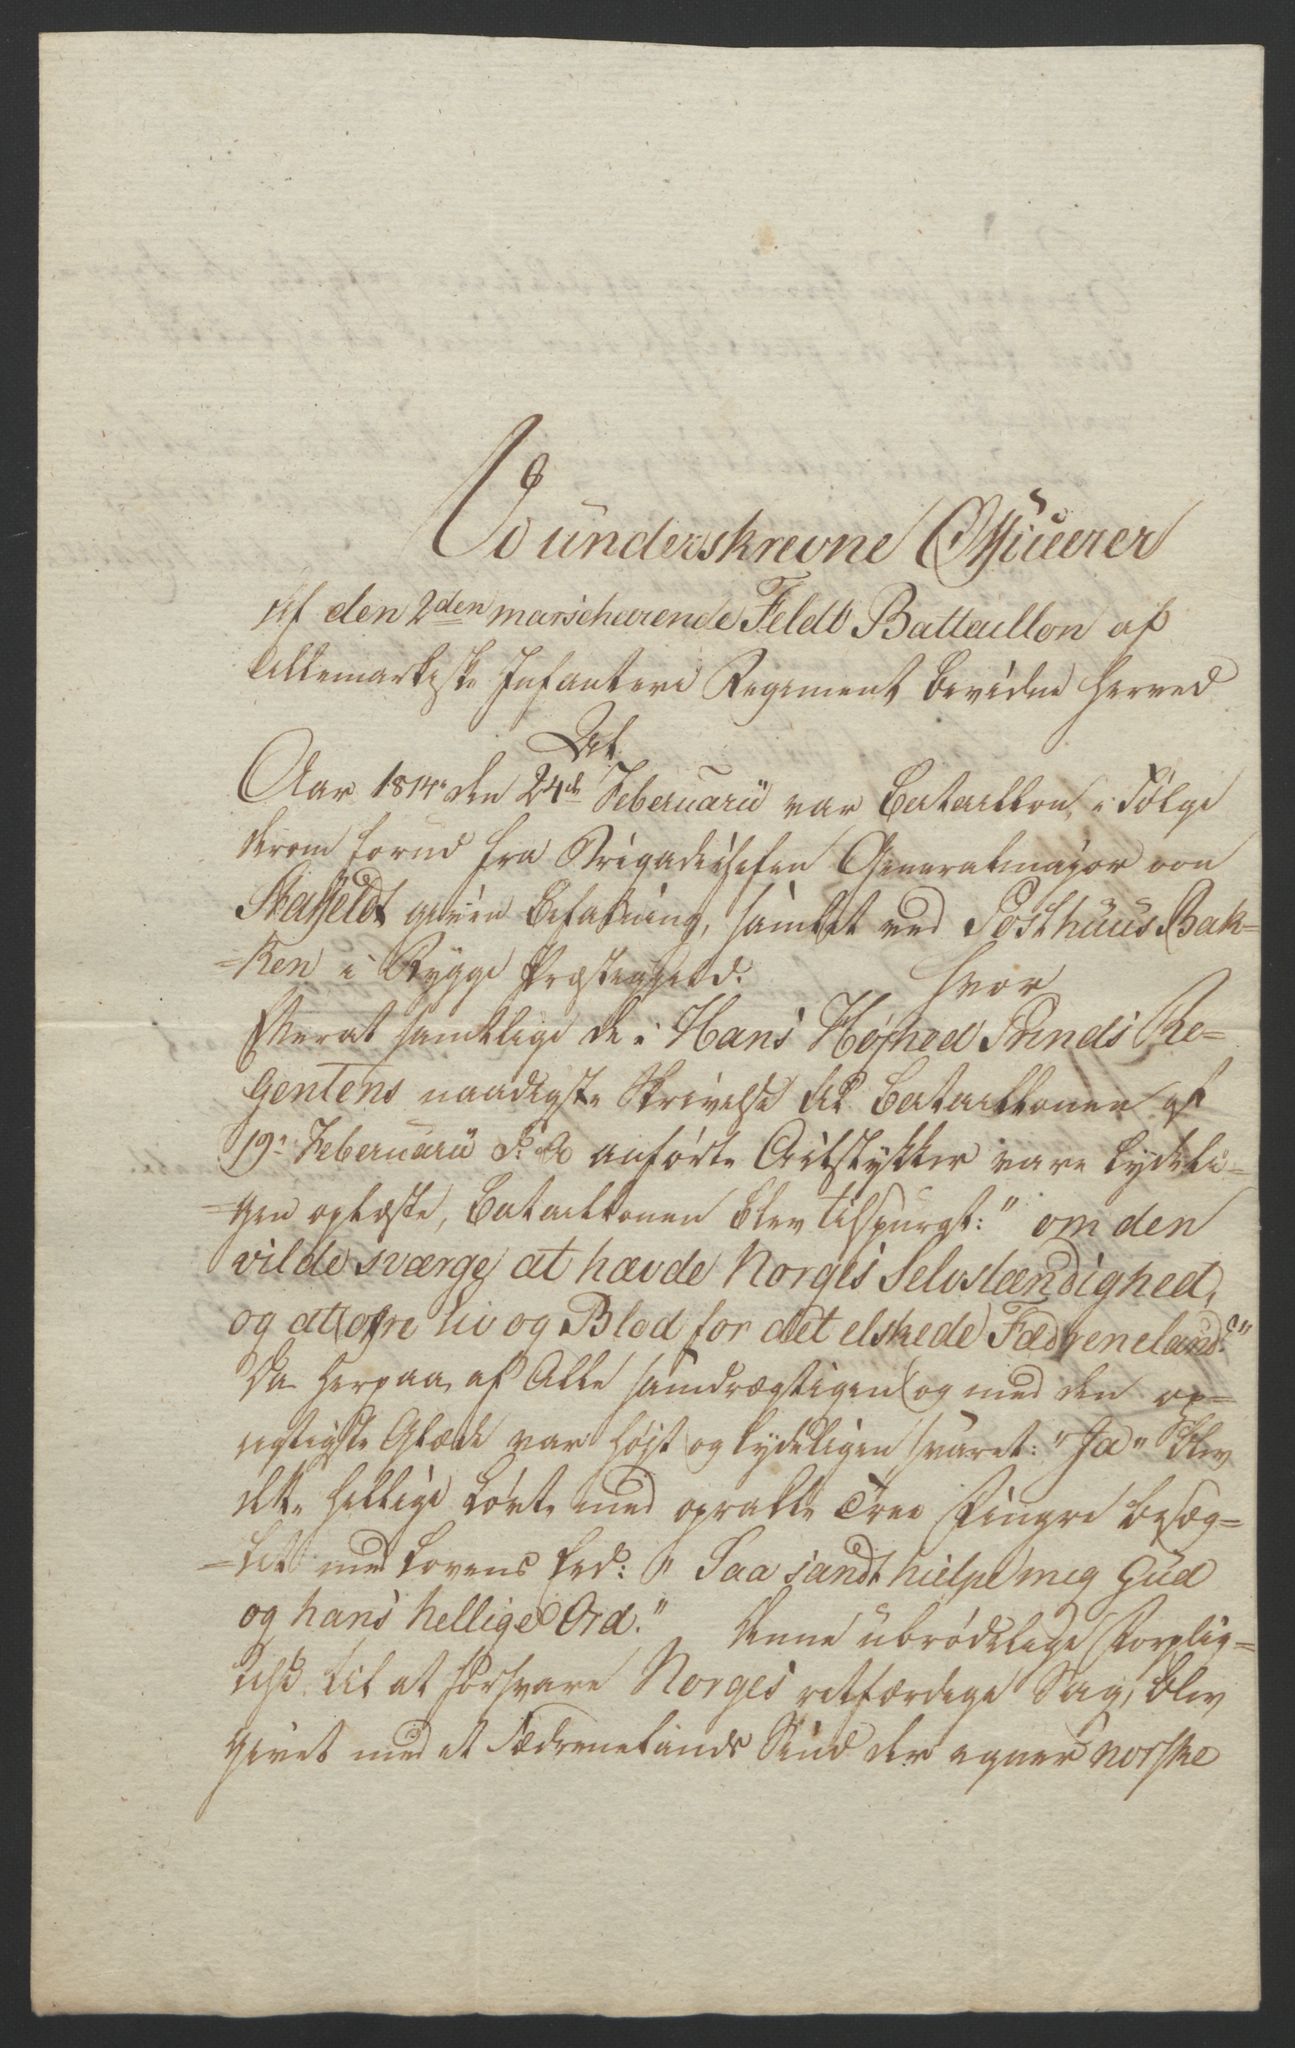 Vi underskrevne Officierer
af den 2den marscherende Feldt Battaillon af
Ackermarkeske Infanteri Regiment bevidne herved
At
Aar 1814 den 24de Februarii var Bataillon, i Følge
derom forud fra Brigadechefen Generalmajor von
Staffeldt given Befaling, samlet ved Posthuus Bak-
=ken i Rygge Præstegield. hvor
Efterat samtlige de i Hans Højhed Prinds Re-
gentens naadigste Skrivelse til Bataillonen af
19. Februarii d: A anførte Actstykker vare lydeli-
=gen oplæste, Bataillonen blev tilspurgt: "om den
vilde sværge at hævde Norges Selvstændighed,
og at ofre Liv og Blod for det elskede Fædreneland?"
Da herpaa af Alle samdrægtigen og med den op-
rigtigste Glæde var højt og lydeligen svaret: "Ja" blev
dette hellige Løvte med oprakte Tree Fingre besæg-
=let med Lovens Eed: "Saa sandt hielpe mig Gud
og hans hellige Ord." Denne ubrødelige Forplig-
telse til at forsvare Norges retfærdige Sag, blev
givet med et Fædrenelands Sind der egner norske